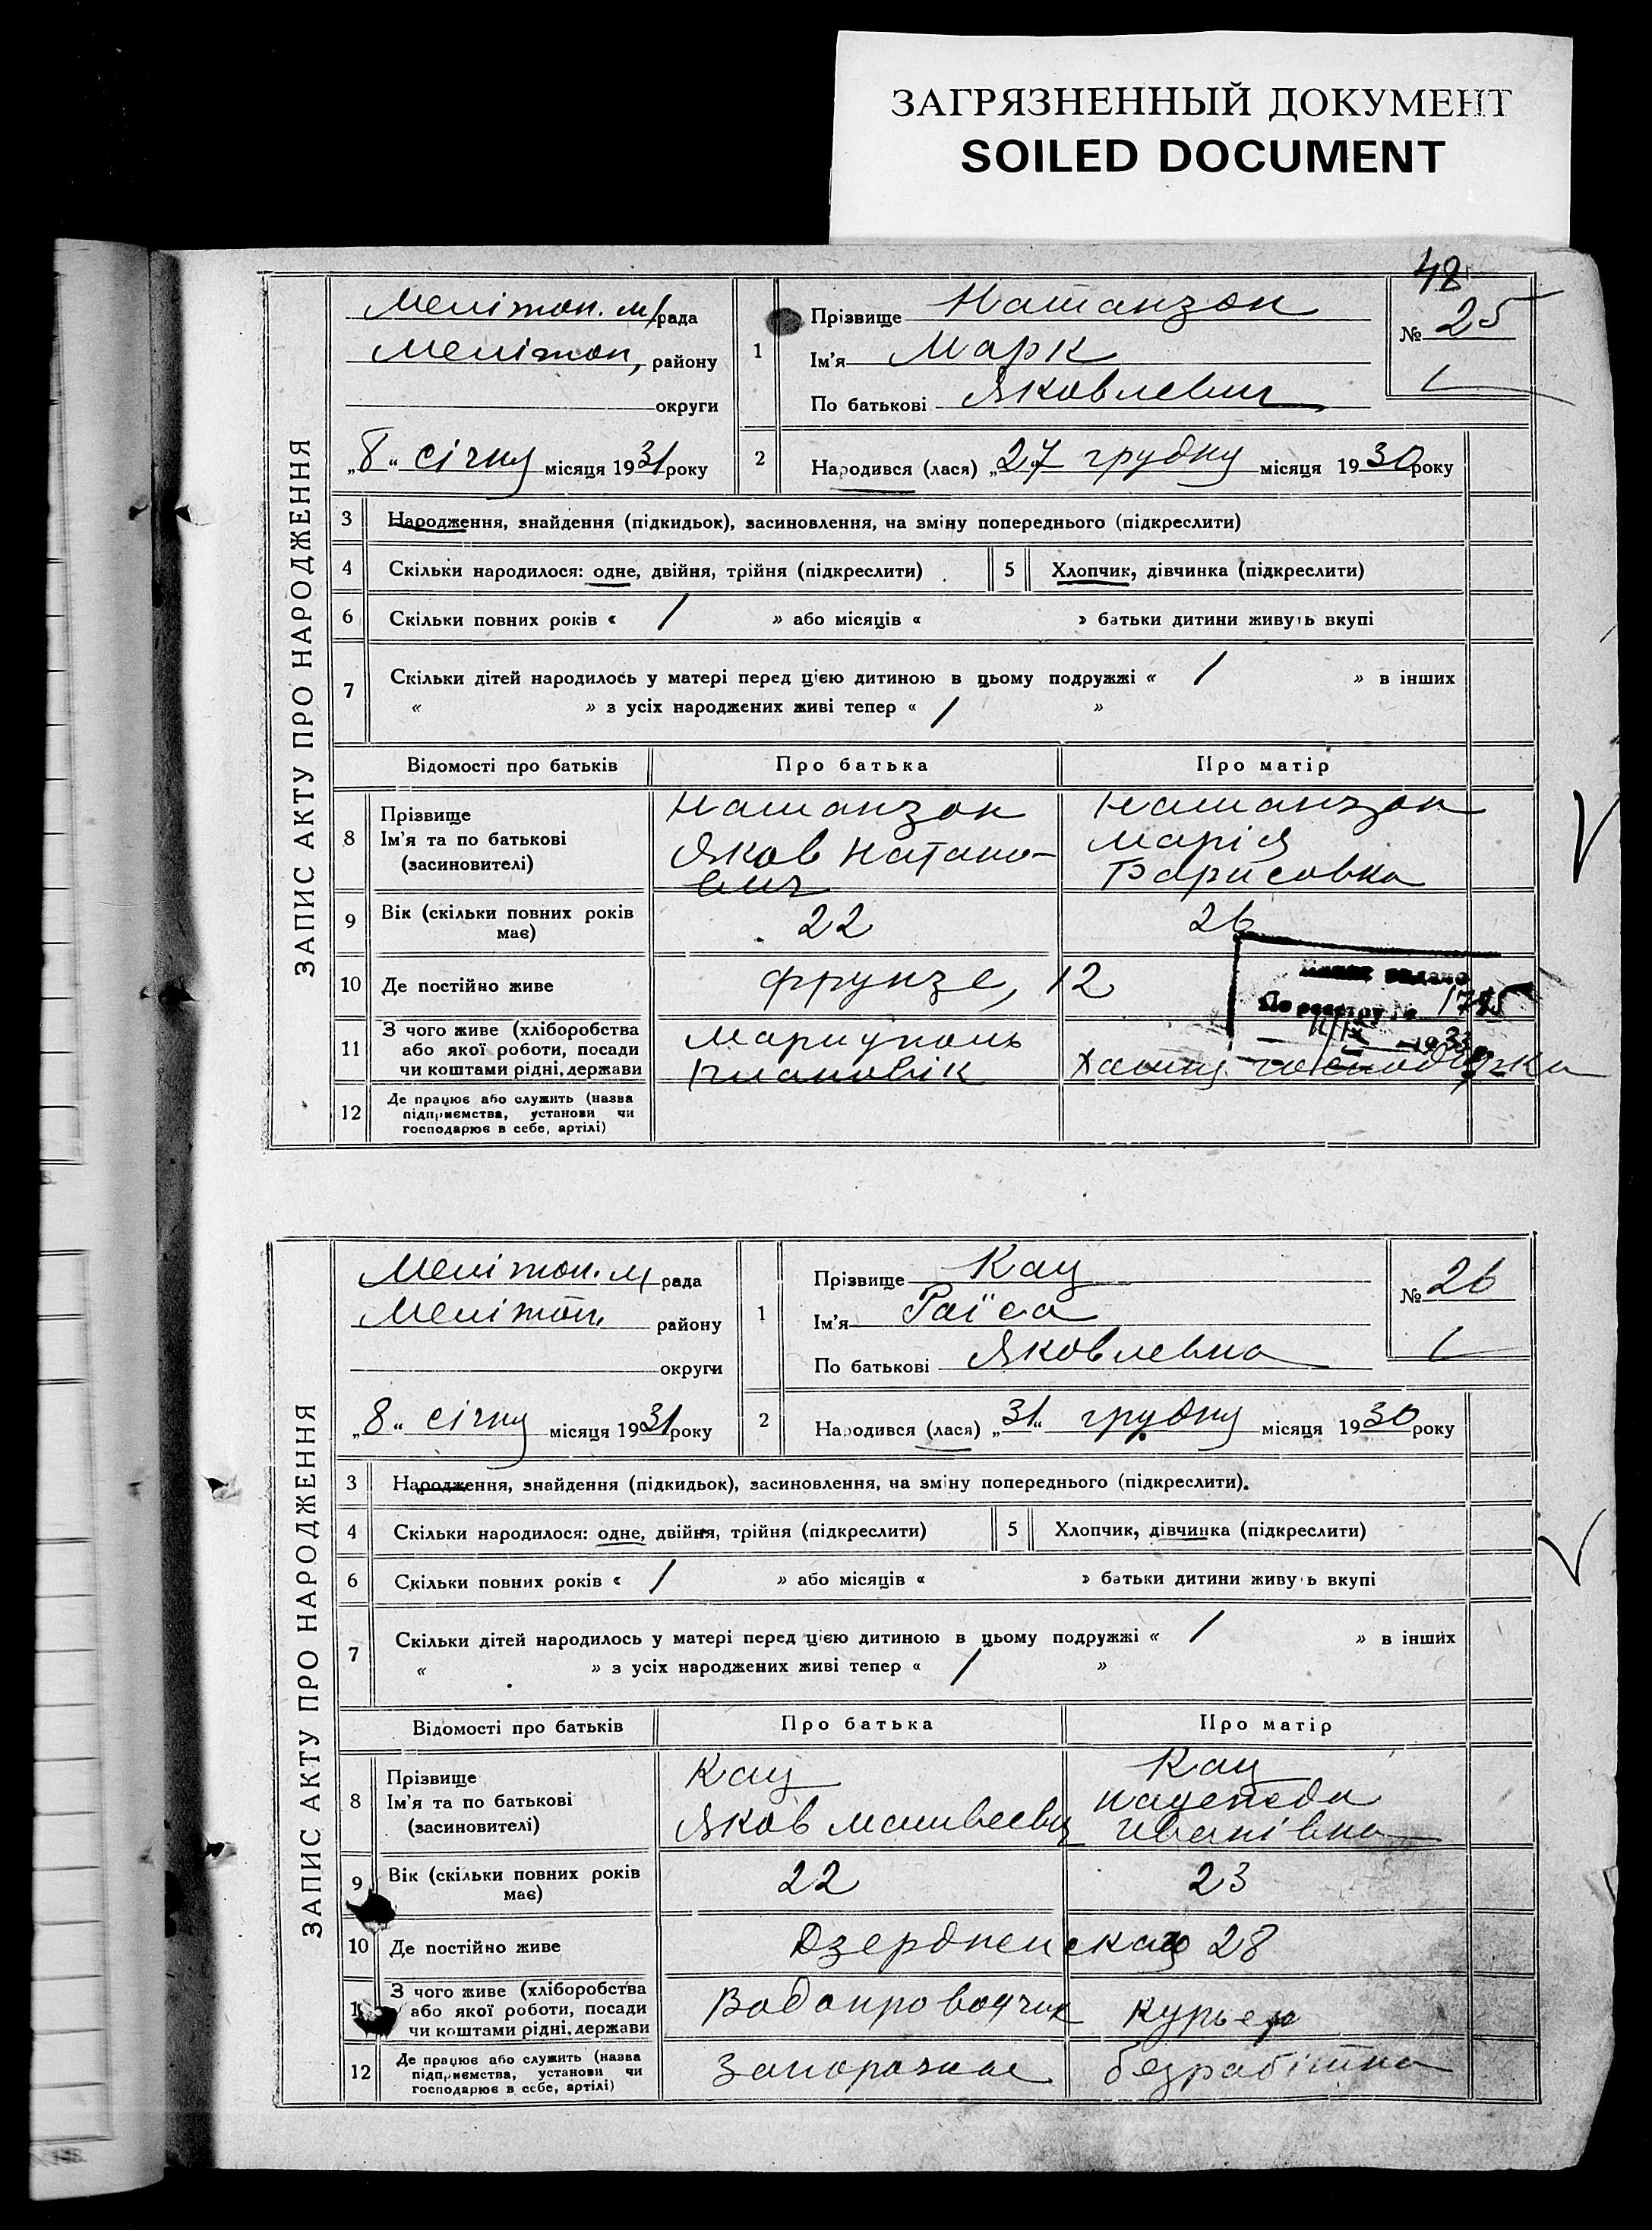 ЗАГРЯЗНЕННЫЙ ДОКУМЕНТ
SOILED DOCUMENT
48
ЗАПИС АКТУ ПРО НАРОДЖЕННЯ
Меліт­оп. м/рада
Мелітоп, району
округи
„8“ січня місяця 1931 року
1
Прізвище Натанзон
Ім'я Марк
По батькові Яковлевич
№ 25
2 Народився (лася) „27 грудня місяця 1930 року
3 Народження, знайдення (підкидьок), засиновлення, на зміну попереднього (підкреслити)
4 Скільки народилося: одне, двійня, трійня (підкреслити) 5 Хлопчик, дівчинка (підкреслити)
6 Скільки повних років « / » або місяців « » батьки дитини живуть вкупі
7 Скільки дітей народилось у матері перед цією дитиною в цьому подружжі « / » в інших
« » з усіх народжених живі тепер « / »
Відомості про батьків Про батька Про матір
8 Прізвище
Ім'я та по батькові
(засиновителі)
Натанзон
Яков Натано-
вич
Натанзон
Марія
Борисовна
9 Вік (скільки повних років
має)
22 26
10 Де постійно живе Фрунзе, 12
По реєстру №
11 З чого живе (хліборобства
або якої роботи, посади
чи коштами рідні, держави
Мариуполь
плановік
12 Де працює або служить (назва
підприємства, установи чи
господарює в себе, артілі)
ЗАПИС АКТУ ПРО НАРОДЖЕННЯ
Мелітоп. м/рада
Мелітоп. району
округи
„8“ січня місяця 1931 року
1
Прізвище Кац
Ім'я Раїса
По батькові Яковлевна
№ 26
2 Народився (лася) „31“ грудня місяця 1930 року
3 Народження, знайдення (підкидьок), засиновлення, на зміну попереднього (підкреслити).
4 Скільки народилося: одне, двійня, трійня (підкреслити) 5 Хлопчик, дівчинка (підкреслити)
6 Скільки повних років « / » або місяців « » батьки дитини живуть вкупі
7 Скільки дітей народилось у матері перед цією дитиною в цьому подружжі « / » в інших
« » з усіх народжених живі тепер « / »
Відомості про батьків Про батька Про матір
8 Прізвище
Ім'я та по батькові
(засиновителі)
Кац
Яков Матвеевич
Кац
Надежда
Іванівна
9 Вік (скільки повних років
має)
22 23
10 Де постійно живе Дзерженскаго 28
11 З чого живе (хліборобства
або якої роботи, посади
чи коштами рідні, держави
Водопроводчик Курьер
12 Де працює або служить (назва
підприємства, установи чи
господарює в себе, артілі)
Запорожье безработна